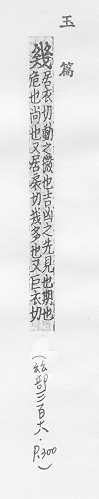 玉篇
幾居衣切動之微也吉凶之先見也期也
危也尚也又居豈切幾多也又巨衣切
(𢆶部三百六·P.300)